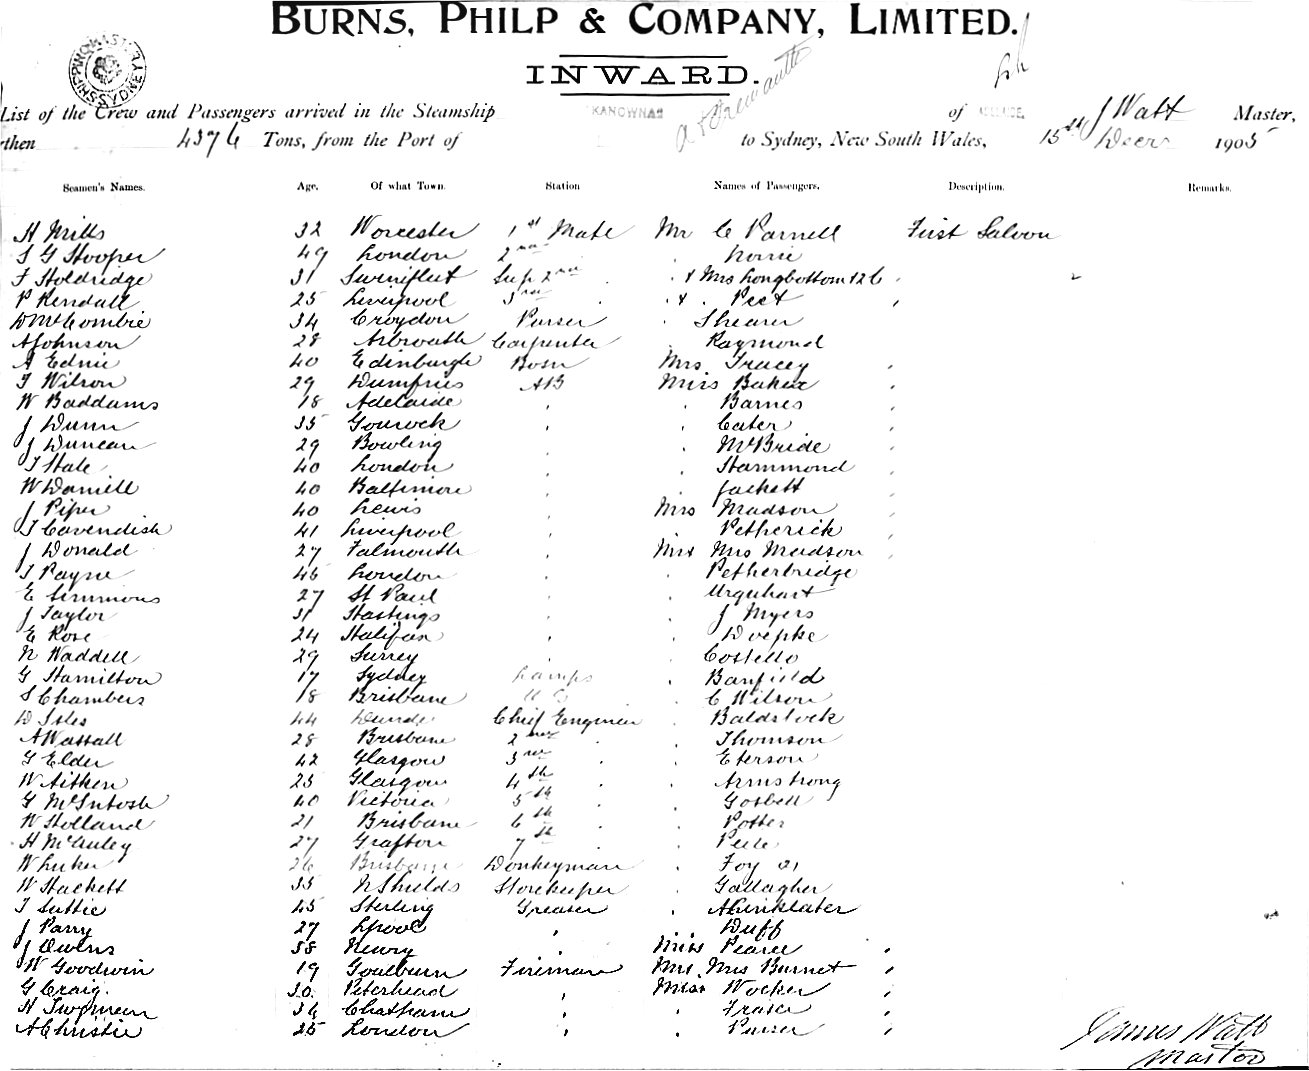 BURNS, PHILP & COMPANY, LIMITED.
INWARD.
List of the Crew and Passengers arrived in the Steamship KANOWNA of J Watt Master,
then 4376 Tons, from the Port of Fremantle to Sydney, New South Wales, 15th Decr 1905
Seamen's Names. Age. Of what Town. Station Names of Passengers. Description. Remarks.
H Mills 32 Worcester 1st Mate Mr C Parnell First Saloon
S G Hooper 49 London 2nd
F Holdridge 31 Swinefleet Sup 2nd & Mrs Longbottom
P Kendall 25 Liverpool 3rd & Peet
D McCombie 34 Croydon Purser Shearer
A Johnson 28 Arbroath Carpenter Raymond
A Edmie 40 Edinburgh Bosn Mrs Tracey
T Wilson 29 Dumfries AB Miss Baker
W Baddams 18 Adelaide Barnes
J Dunn 35 Gourock Cater
J Duncan 29 Bowling McBride
T Hale 40 London Hammond
W Daniell 40 Baltimore Jackett
J Piper 40 Lewis Mrs Madson
T Cavendish 41 Liverpool Petherick
J Donald 27 Falmouth Mrs Madson
T Payne 46 London Petherbridge
E Simmons 27 St Paul Urquhart
J Taylor 31 Hastings J Myers
E Rose 24 Halifax Doepke
N Waddell 29 Surrey Costello
G Hamilton 17 Sydney Lamps Banfield
S Chambers 18 Brisbane C Wilson
D Isles 44 Dundee Chief Engineer Baldstock
A Wassall 28 Brisbane 2nd Thomson
G Elder 42 Glasgow 3rd Eterson
W Aitken 25 Glasgow 4th Armstrong
G McIntosh 40 Victoria 5th Gosbell
W Holland 21 Brisbane 6th Potter
H McAuley 27 Grafton 7th Peile
W Luke 26 Brisbane Donkeyman Foy
W Hackett 35 N Shields Storekeeper Gallagher
T Suttie 45 Sterling Greaser
J Parry 27 Lpool Duff
J Owens 38 Newry Miss Pearce
W Goodwin 19 Goulburn Fireman Mrs Burnet
G Craig. 30. Peterhead Wocker
H Twyman 34 Chatham Fraser
A Christie 25 London Purser
James Watt
Master